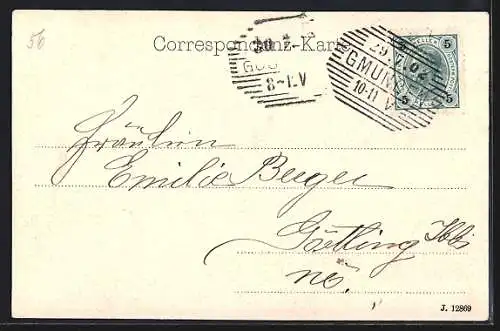 56
Correspondenz-Karte
5 5
5 5
29.7.02
GMUNDEN
10-11 V
8-1.V
Fräulein
Emilie Berger
Göstling Ybbs
nö.
J. 12869